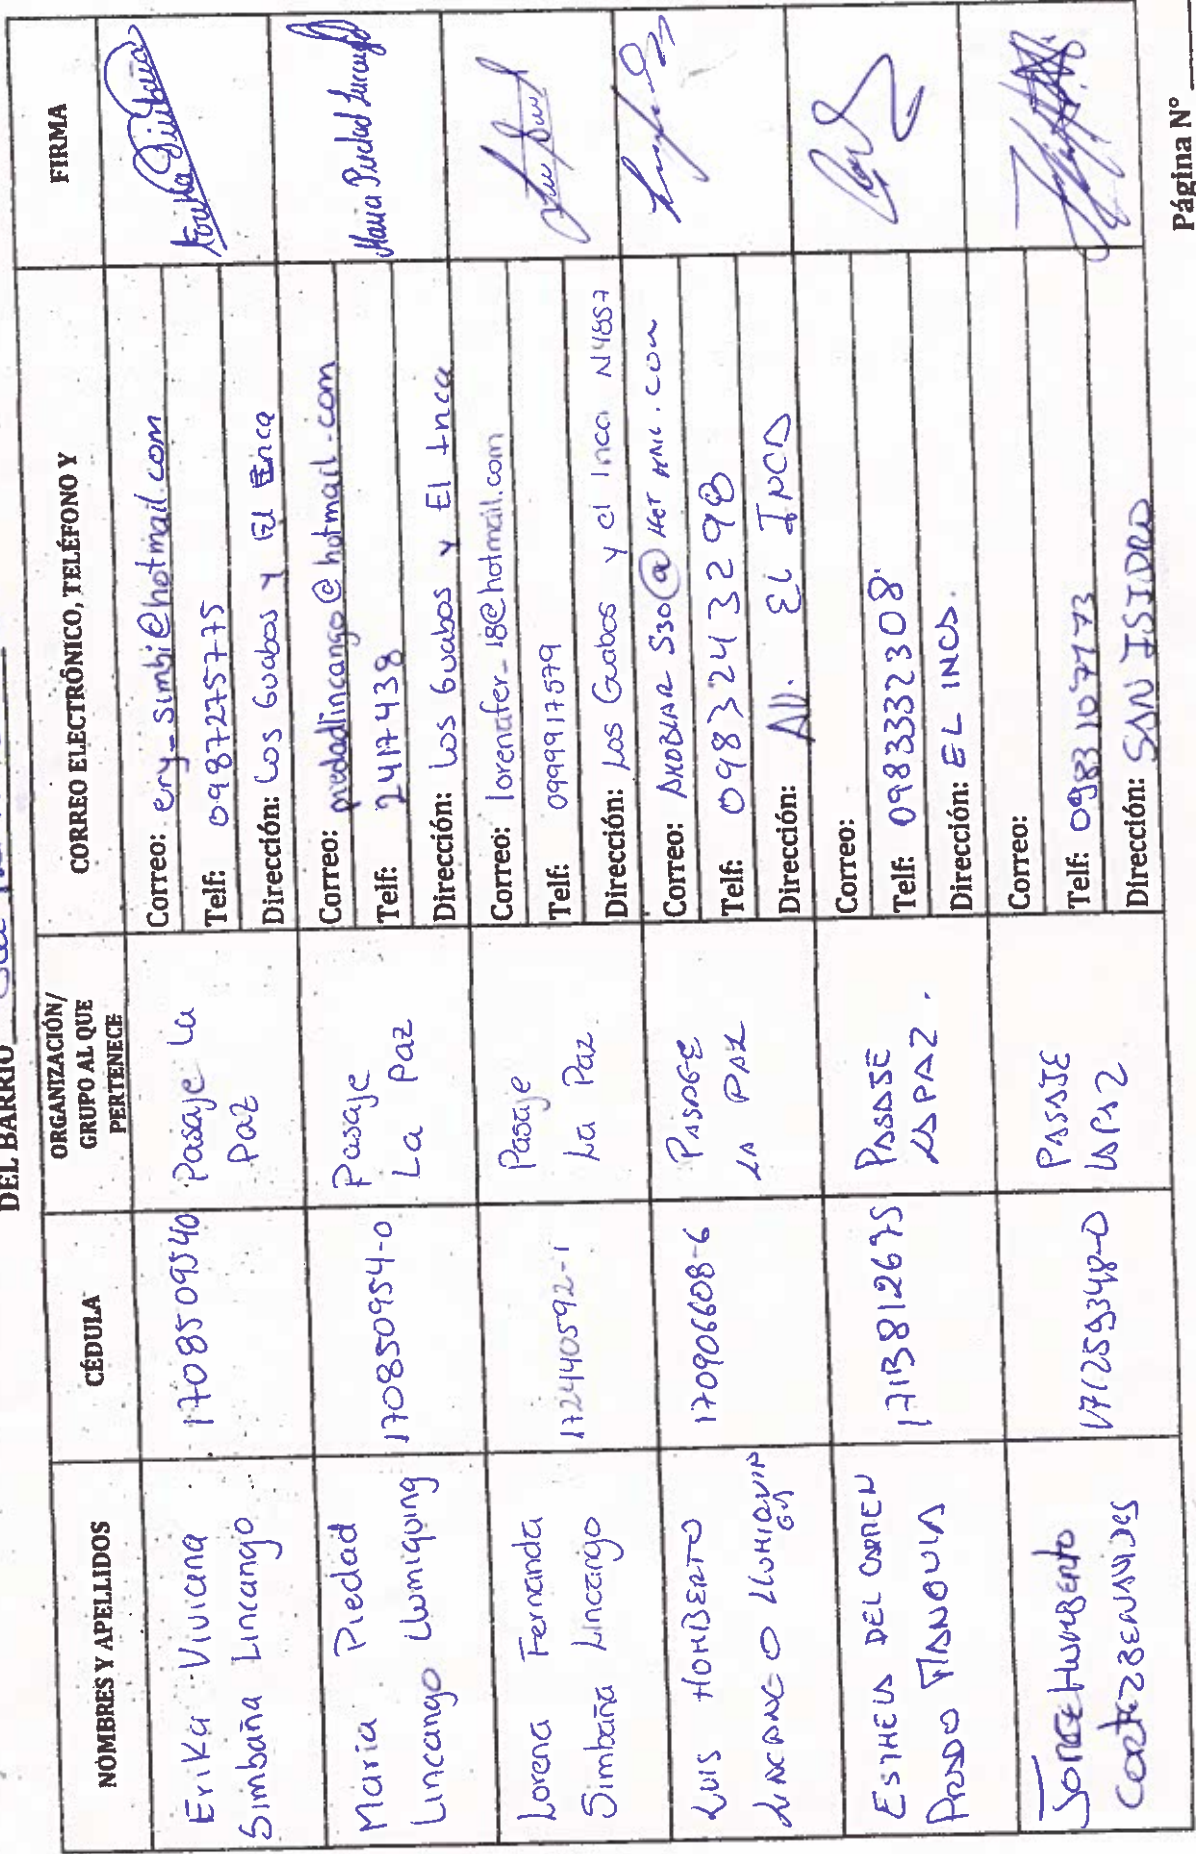 DEL BARRIO
NOMBRES Y APELLIDOS
CÉDULA
ORGANIZACIÓN/
GRUPO AL QUE
PERTENECE
CORREO ELECTRÓNICO, TELÉFONO Y
FIRMA
Erika Viviana
Simbaña Lincango
1708509540
Pasaje La
Paz
Correo: ery_simbi@hotmail.com
Telf: 0987275775
Dirección: Los Guabos y El Inca
Maria Piedad
Lincango Llumiquing
170850954-0
Pasaje
La Paz
Correo: piedadlincango@hotmail.com
Telf: 2417438
Dirección: Los Guabos y El Inca
Maria Piedad Lincango
Lorena Fernanda
Simbaña Lincango
172440592-1
Pasaje
La Paz.
Correo: lorenafer_18@hotmail.com
Telf: 0999917579
Dirección: Los Guabos y el Inca N4857
LUIS HOMBERTO
LINCANGO LLUMIQUIN
GA
170906608-6
PASAGE
LA PAZ
Correo: @HOTMAIL.COM
Telf: 0983243298
Dirección: AV. EL INCA
ESTHELA DEL CARMEN
PRADO
1713812695
PASAJE
LA PAZ.
Correo:
Telf: 0983332308.
Dirección: EL INCA.
JORGE HUMBERTO
CORTEZ BENAVIDES
171259348-0
PASAJE
LA PAZ
Correo:
Telf: 0983107773
Dirección: SAN ISIDRO
Página N°